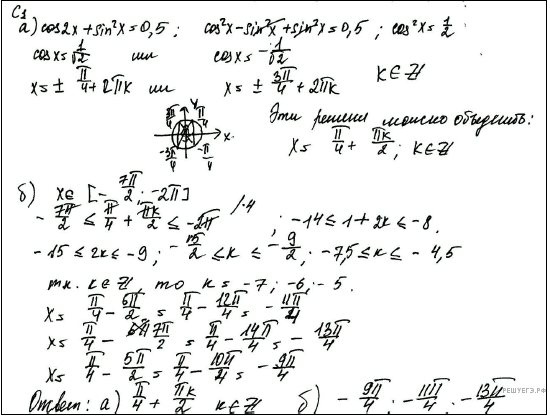 C1
а) cos2x + sin²x = 0,5 ; cos²x - sin²x + sin²x = 0,5 ; cos²x = 1/2
cosx = 1/√2 или cosx = -1/√2
x = ± π/4 + 2πk или x = ± 3π/4 + 2πk k∈Z
3π/4 y π/4
x
-3π/4 -π/4
Эти решения можно объединить:
x = π/4 + πk/2 ; k∈Z
б) x∈ [-7π/2 ; -2π]
-7π/2 ≤ π/4 + πk/2 ≤ -2π /·4 ; -14 ≤ 1 + 2k ≤ -8.
-15 ≤ 2k ≤ -9 ; -15/2 ≤ k ≤ -9/2 ; -7,5 ≤ k ≤ -4,5
т.к. k∈Z, то k = -7 ; -6 ; -5.
x = π/4 - 6π/2 = π/4 - 12π/4 = -11π/4
x = π/4 - 7π/2 = π/4 - 14π/4 = -13π/4
x = π/4 - 5π/2 = π/4 - 10π/4 = -9π/4
Ответ: а) π/4 + πk/2 k∈Z б) -9π/4 ; -11π/4 ; -13π/4
РЕШУЕГЭ.РФ